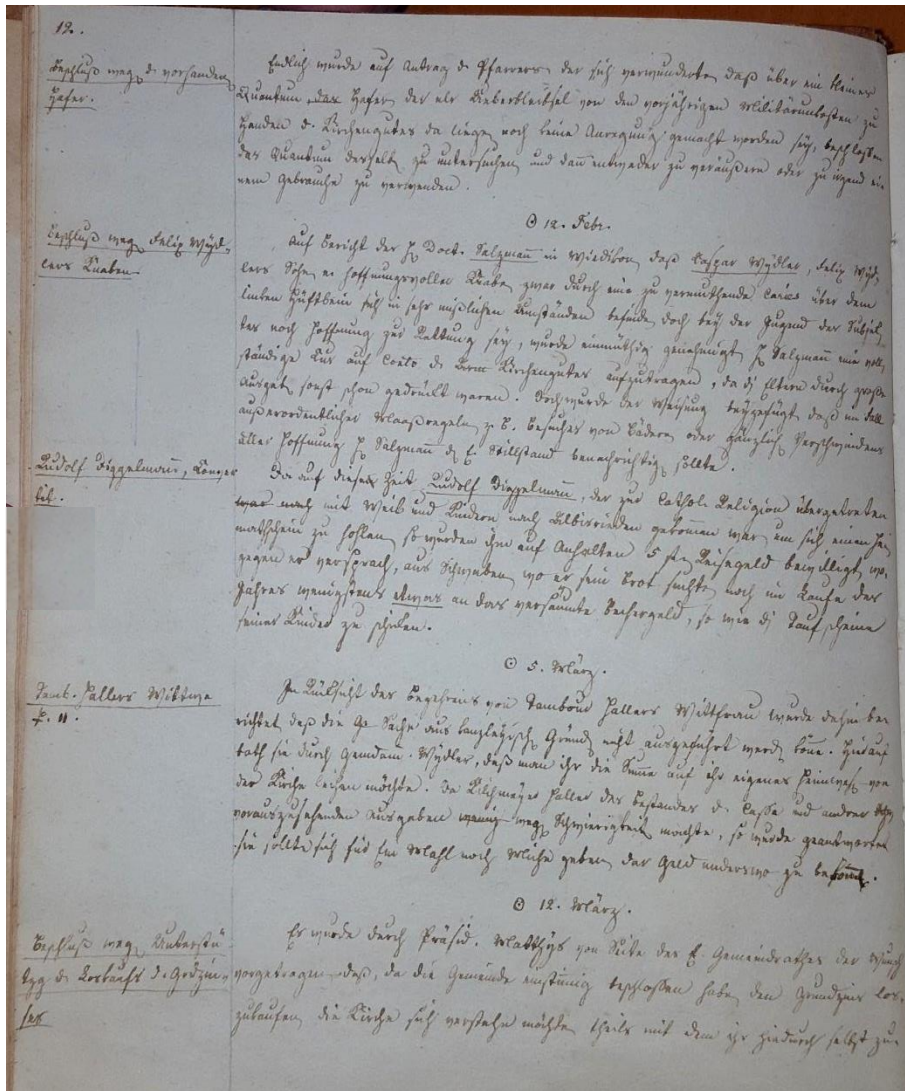 12.
Beschluß weg. d. vorhanden
Hafer.
Endlich wurde auf Antrag d. Pfarrers der sich verwunderte, daß über ein kleiner
Quantum das Hafer, der als Ueberbleibsel von den vorjährigen Militärunkosten zu
Handen d. Kirchengutes da liege, noch keine Anregung gemacht worden sey, beschlossen
das Quantum desselb. zu untersuchen und dann entweder zu veräußern oder zu irgend ei-
nem Gebrauche zu verwenden.
☉ 12. Febr.
Beschluß weg. Felix Wyd-
lers Knaben.
Auf Bericht des H. Doct. Salzmann in Wiedikon, daß Caspar Wydler, Felix Wyd-
lers Sohn, ein hoffnungsvoller Knabe, zwar durch eine zu vermuthende Caries über dem
linken Hüftbein sich in sehr mißlichen Umständen befinde, doch bey der Jugend des Subjek-
tes noch Hoffnung zur Rettung sey, wurde einmüthig genehmigt H. Salzmann eine voll-
ständige Cur auf Costo d. Kirchengutes aufzutragen, da di Eltern durch große
Ausgab. sonst schon gedrückt waren. Doch wurde der Weisung beygefügt, daß im Fall
außerordentlicher Maaßregeln z. B. Besuches von Bädern oder gänzlich Verschwindens
aller Hoffnung H. Salzmann d. E. Stillstand benachrichtig. sollte.
Rudolf Diggelmann,
Da auf diese Zeit Rudolf Diggelmann, der zur Cathol. Religion übergetreten
war nach mit Weib und Kindern nach Albisrieden gekommen war, um sich einen Hei-
mathschein zu hohlen, so wurden ihm auf Anhalten 5 Reisegeld bewilligt, wo-
gegen er versprach, aus Schwaben, wo er sein Brot suchte, noch im Laufe des
Jahres wenigstens etwas an das versäumte Bechergeld, so wie di Taufscheine
seiner Kinder zu schicken.
☉ 5. März.
Tamb. Hallers Wittwe
p. 11.
In Rücksicht des Begehrens von Tambour Hallers Wittfrau wurde dahin be-
richtet daß die Sache aus kanzleyisch. Gründ. nicht ausgeführt werd. könne. Hierauf
bath sie durch Gemdam. Wydler, daß man ihr die Summe auf ihr eigenes Heimwes. von
der Kirche leihen möchte. Da Kilchmeyer Haller des Bestandes d. Casse und andrer
vorauszusehenden Ausgaben wenig weg. Schwierigkeit machte, so wurde geantwortet
sie sollte sich für Ein Mahl noch Mühe geben, das Geld anderswo zu bekomm.
☉ 12. März.
Beschluß weg. Unterstü-
tzg d. Loskaufs d. Grdzin-
ses
Es wurde durch Präsid. Matthys von Seite des E. Gemeindrathes der Wunsch
vorgetragen, daß, da die Gemeinde einstimmig beschlossen habe, den Grundzins los-
zukaufen, die Kirche sich verstehn möchte, theils mit dem ihr hiedurch selbst zu-